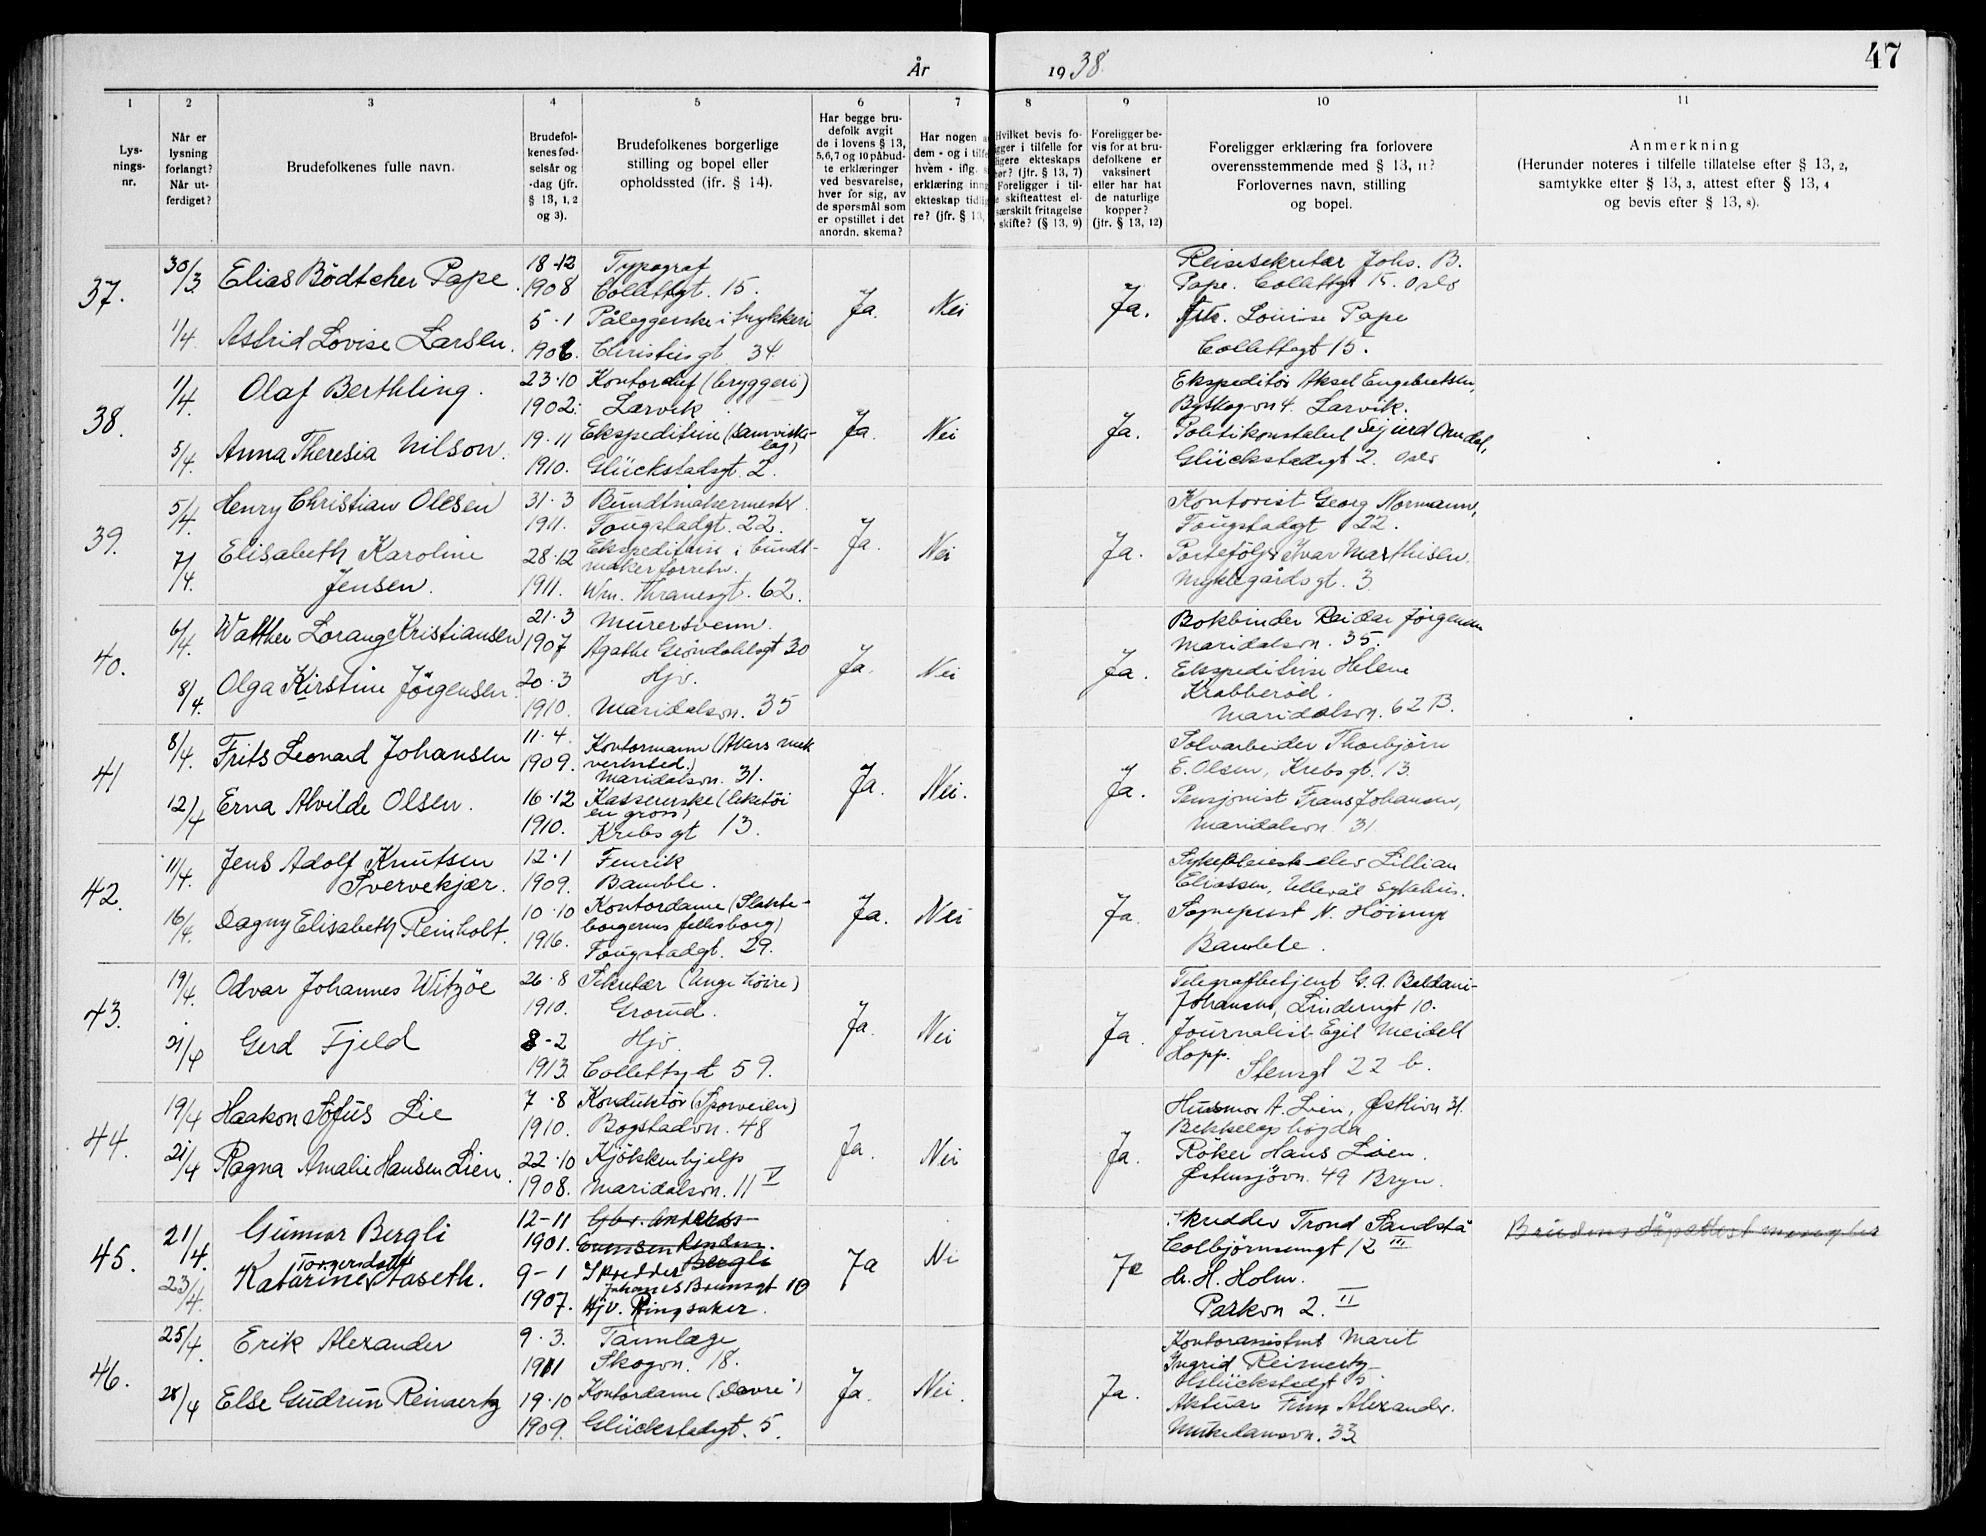 År 1938.
47
1 2 3 4 5 6 7 8 9 10 11
Lysningsnr.
Når er lysning forlangt? Når utferdiget?
Brudefolkenes fulle navn.
Brudefolkenes fødselsår og -dag (jfr. § 13, 1, 2 og 3).
Brudefolkenes borgerlige stilling og bopel eller opholdssted (ifr. § 14).
Har begge brudefolk avgit de i lovens § 13, 5, 6, 7 og 10 påbudte erklæringer ved besvarelse, hver for sig, av de spørsmål som er opstillet i det anordn. skema?
Har nogen a
dem - og i tilfe
hvem - iflg. s
erklæring inng
ekteskap tidlig
re? (jfr. § 13,
Hvilket bevis fo-
gger i tilfelle for
ligere ekteskaps
ør? (jfr. § 13, 7)
Foreligger i til-
e skifteattest el-
særskilt fritagelse
skifte? (§ 13, 9)
Foreligger bevis for at brudefolkene er vaksinert eller har hat de naturlige kopper? (jfr. § 13, 12)
Foreligger erklæring fra forlovere overensstemmende med § 13, 11? Forlovernes navn, stilling og bopel.
Anmerkning
(Herunder noteres i tilfelle tillatelse efter § 13, 2,
samtykke efter § 13, 3, attest efter § 13, 4
og bevis efter § 13, 8).
37.
30/3
Elias Bödtcher Pape
18-12
1908
Typograf
Collettgt. 15.
1/4
Astrid Lovise Larsen.
5.1
1906.
Påleggerske i trykkeri
Christiesgt. 34
Ja. Nei Ja.
Reisesekretær Johs. B.
Pape. Collettgt 15. Oslo
Frk. Louise Pape
Collettsgt 15.
38.
1/4
Olaf Berthling.
23.10
1902.
Kontorchef (bryggeri)
Larvik.
5/4.
Anna Theresia Nilson.
19.11
1910.
Ekspeditrise (Samvirke-
lag)
Glückstadsgt. 2.
Ja. Nei Ja.
Ekspeditör Aksel Engebretsen,
Byskogvn 4. Larvik.
Politikonstabel Sigurd Omdal,
Glückstadsgt 2. Oslo
39.
5/4.
Henry Christian Olesen
31.3
1911.
Bundtmakermester
Tougstadgt. 22.
7/4.
Elisabeth Karoline
Jensen.
28.12
1911.
Ekspeditrise i bundt-
makerforretn.
Wm. Thranesgt. 62.
Ja. Nei Ja.
Kontorist Georg Normann,
Tougstadgt 22.
Portefölj Ivar Marthisen
Myklegårdsgt. 3
40.
6/4.
Walther Lorang Kristiansen
21.3
1907
Murersvenn.
Agathe Gröndahlsgt 30
8/4.
Olga Kirstine Jörgensen.
20.3
1910.
Hjv.
Maridalsvn. 35
Ja. Nei Ja.
Bokbinder Reidar Jörgensen
Maridalsvn. 35.
Ekspeditrise Helene
Krabberöd.
Maridalsvn. 62 B.
41
8/4.
Frits Leonard Johansen
11.4.
1909.
Kontormann (Akers mek
verksted.)
Maridalsvn. 31.
12/4
Erna Alvilde Olsen.
16.12
1910.
Kassererske (leketöi
en gros)
Krebsgt 13.
Ja. Nei. Ja.
Sölvarbeider Thorbjörn
E. Olsen, Krebsgt. 13.
Pensjonist Frans Johansen,
Maridalsvn 31
42.
11/4.
Jens Adolf Knutsen
Svervekjær.
12.1
1909.
Fenrik
Bamble.
16/4.
Dagny Elisabeth Reinholt.
10.10
1916.
Kontordame (Slakte-
borgernes fellesborg)
Tougstadgt. 29.
Ja. Nei Ja.
Sykepleierskelev Lillian
Eliassen, Ullevål sykehus.
Sogneprest N. Höirup
Bamble.
43.
19/4.
Odvar Johannes Witzöe
26.8
1910.
Sekretær (Unge Höire)
Grorud.
21/4
Gerd Fjeld
8-2
1913.
Hjv.
Collettsgt 59.
Ja. Nei Ja.
Telegrafbetjent G. A. Beldani-
Johansen, Linderngt 10.
Journalist Egil Meidell
Hopp.
Stensgt 22 b.
44.
19/4
Haakon Sofus Lie
7.8
1910.
Konduktör (Sporveien)
Bogstadvn. 48
21/4
Ragna Amalie Hansen Lien.
22.10
1908.
Kjökkenhjelp
Maridalsvn. 11 V
Ja. Nei Ja.
Husmor A. Lien, Östlivn 31.
Bekkelagshögda
Röker Hans Lien.
Östensjövn. 49 Bryn.
45.
21/4.
Gunnar Bergli
12-11
1901.
Gbr. Anders
Evensen Rendem.
Skredder Bergli
Johannes Brunsgt 10
23/4.
Torgersdatter
Katarine Aaseth.
9-1
1907.
Hjv. Ringsaker.
Ja Ni Ja
Skredder Trond Sandstå
Colbjörnsensgt 12 III
H. H. Holm.
Parkvn 2. II
Brudens dåpattest
46.
25/4.
Erik Alexander
9.3.
1911
Tannlæge
Skogvn. 18.
28/4
Else Gudrun Reinertz
19.10
1909.
Kontordame (Davre")
Glückstadgt. 5.
Ja. Nei. Ja.
Kontorassistent Marit
Ingrid Reinertz
Glückstadgt 5
Aktuar Finn Alexander.
Munkedamsvn. 33